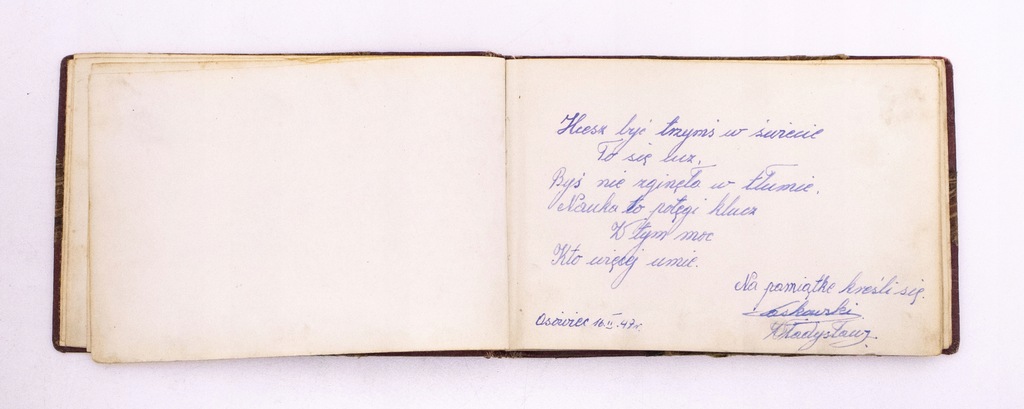 Hcesz być tzymś w świecie
To się ucz,
Byś nie zginęła w tłumie.
Nauka to potęgi klucz
W tym moc
Kto więcej umie.
Na pamiątke kreśli się.
Laskowski
Władysław.
Osówiec 16.II.47r.